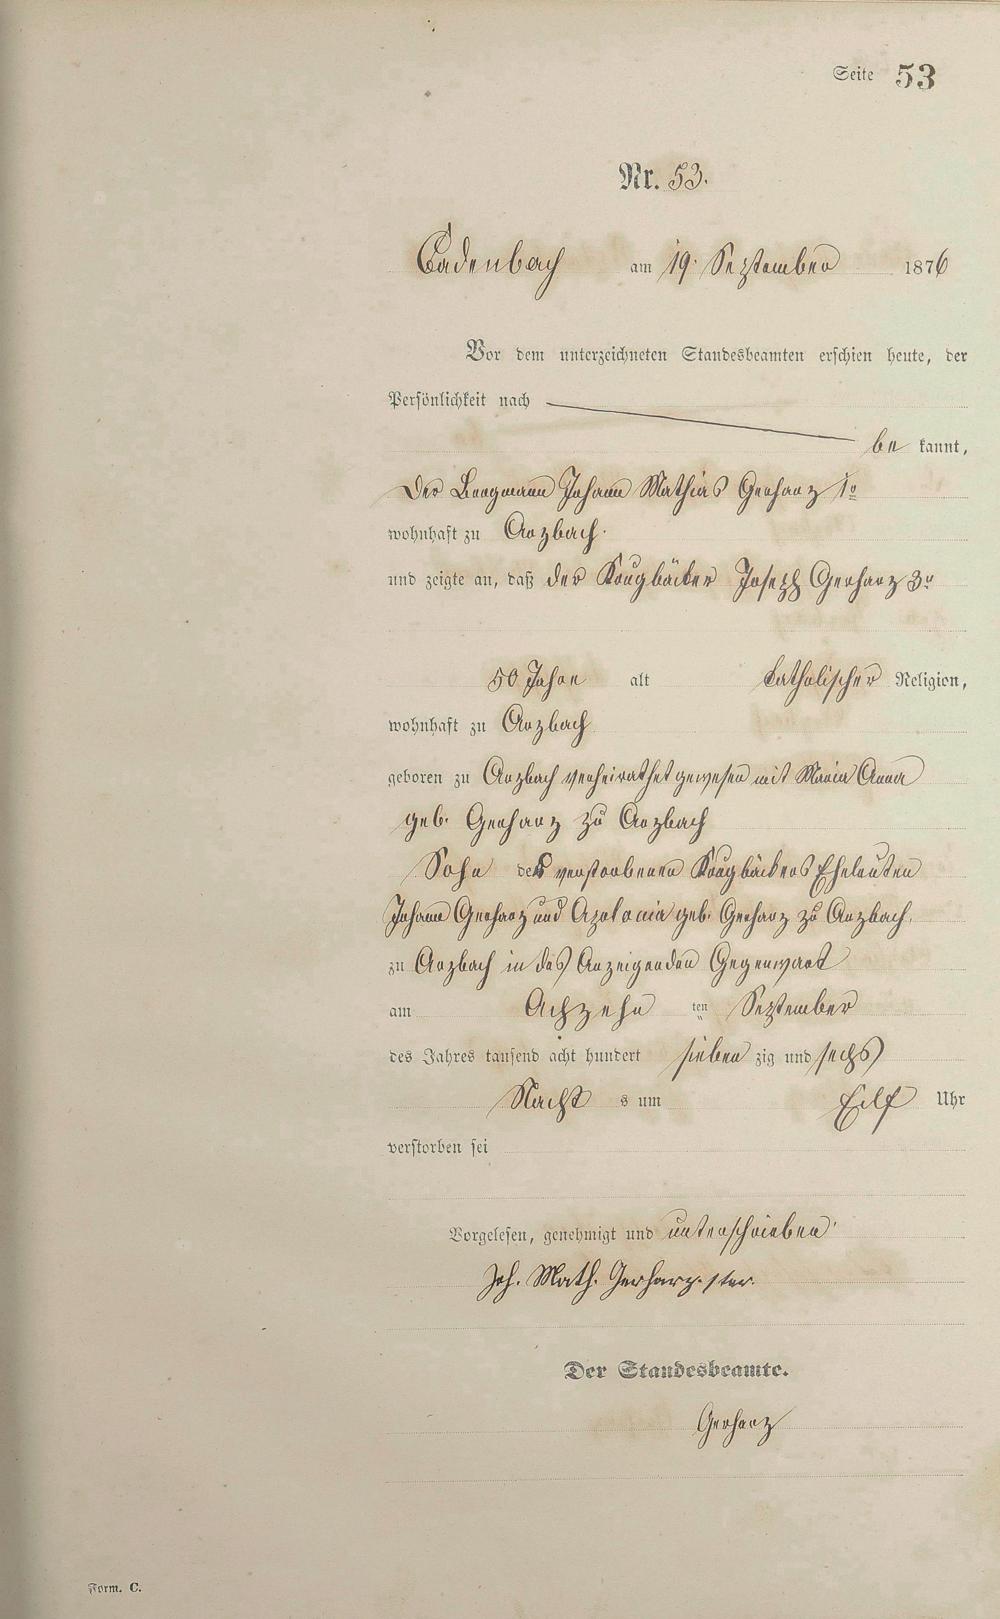 Seite 53
Nr. 53.
Cadenbach am 19. September 1876
Vor dem unterzeichneten Standesbeamten erschien heute, der
Persönlichkeit nach
be kannt,
der Bergmann Johann Mathias Gerharz 1r
wohnhaft zu Arzbach.
und zeigte an, daß der Krugbäcker Joseph Gerharz 3r
50 Jahre alt katholischer Religion,
wohnhaft zu Arzbach
geboren zu Arzbach verheirathet gewesen mit Maria Anna
geb. Gerharz zu Arzbach
Sohn der verstorbenen Krugbäckers Eheleuten
Johann Gerharz und Apolonia geb. Gerharz zu Arzbach.
zu Arzbach in des Anzeigenden Gegenwart
am Achzehn ten September
des Jahres tausend acht hundert sieben zig und sechs
Nacht s um Eilf Uhr
verstorben sei
Vorgelesen, genehmigt und unterschrieben
Joh. Math. Gerharz. 1ter.
Der Standesbeamte.
Gerharz
Form. C.